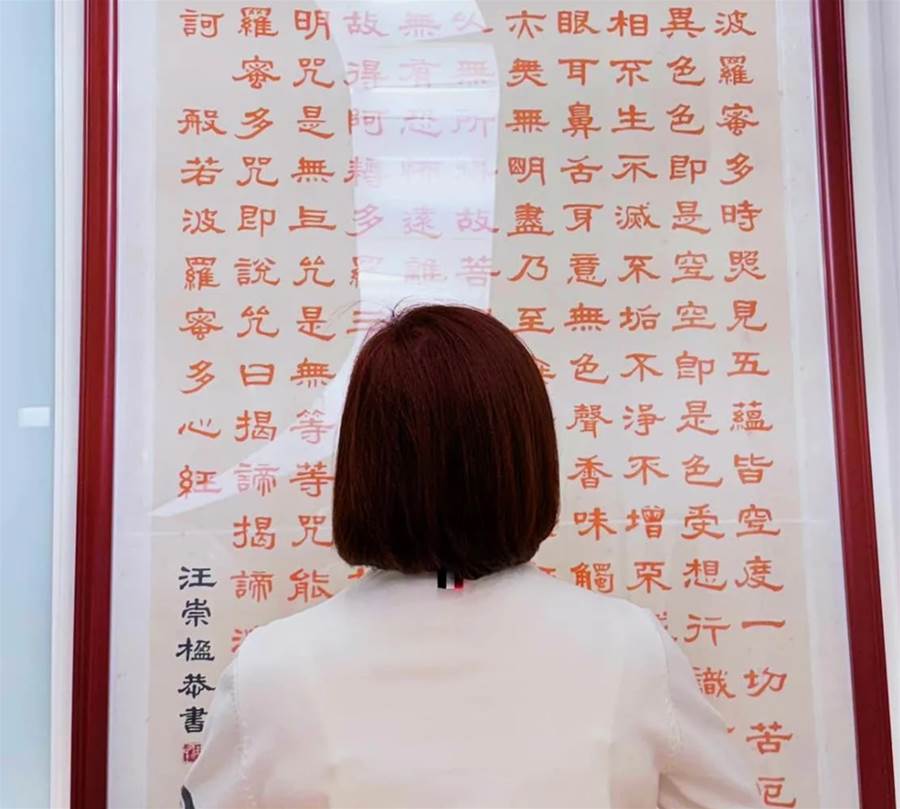 波羅蜜多時照見五蘊皆空度一切苦厄
異色色即是空空即是色受想行識
相不生不滅不垢不淨不增不
眼耳鼻舌身意無色聲香味觸
亦無無明盡乃至
以無所得故菩
無有恐怖遠離
故得阿耨多羅三
明咒是無上咒是無等等咒能
羅蜜多咒即說咒曰揭諦揭諦
訶 般若波羅蜜多心經
汪崇楹恭書